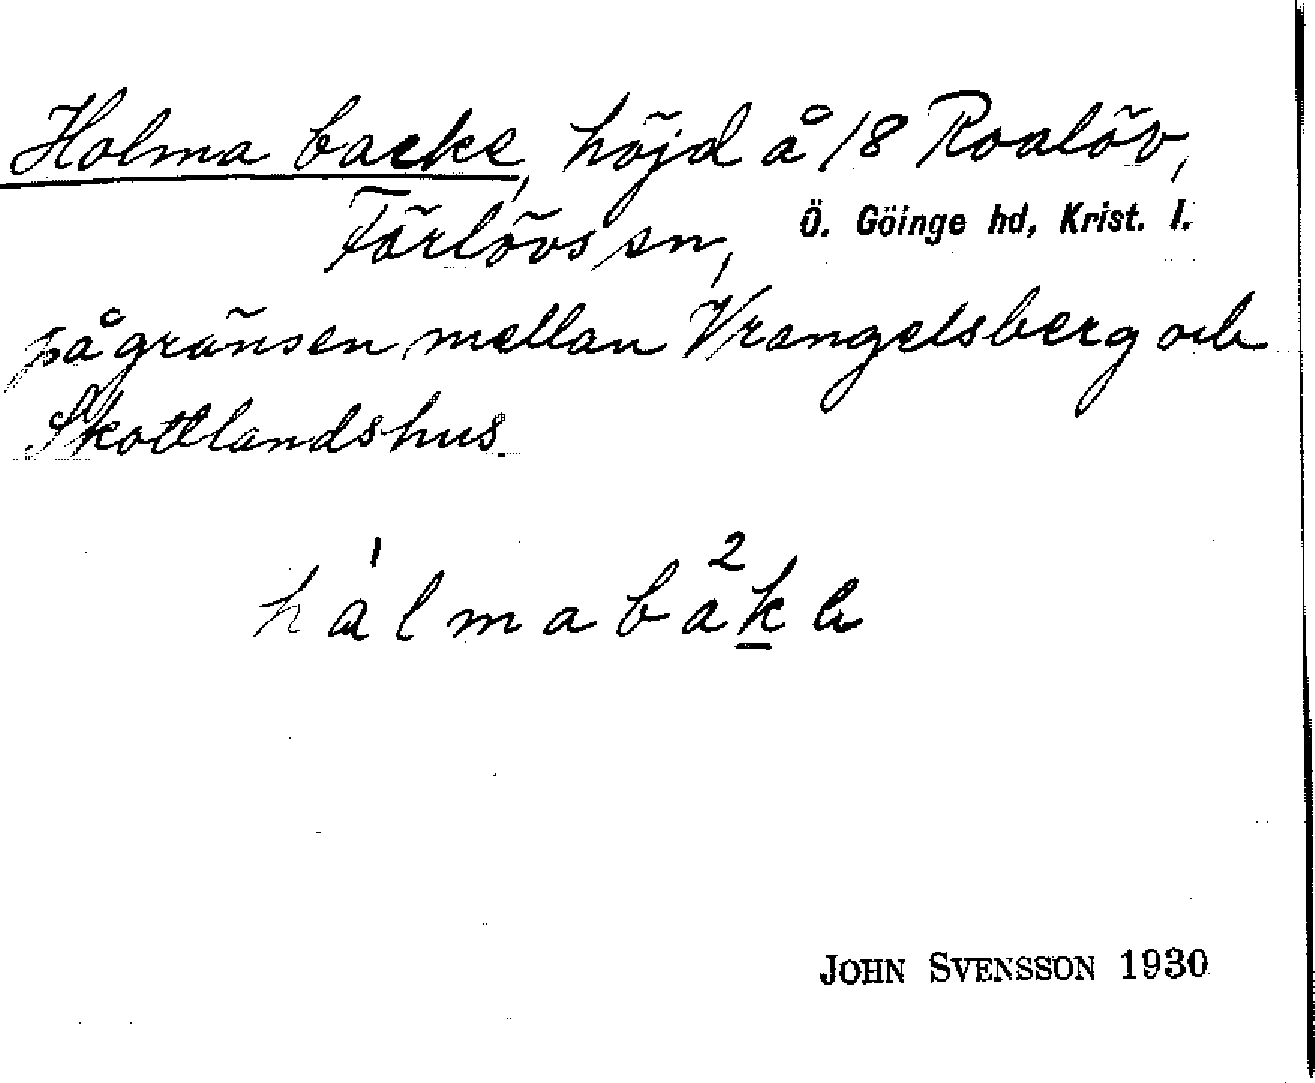 Holma backe, höjd å 18 Roalöv,
Färlövs sn, Ö. Göinge hd, Krist. l.
på gränsen mellan Vrangelsberg och
Skottlandshus.
hálmaba²ka
JOHN SVENSSON 1930